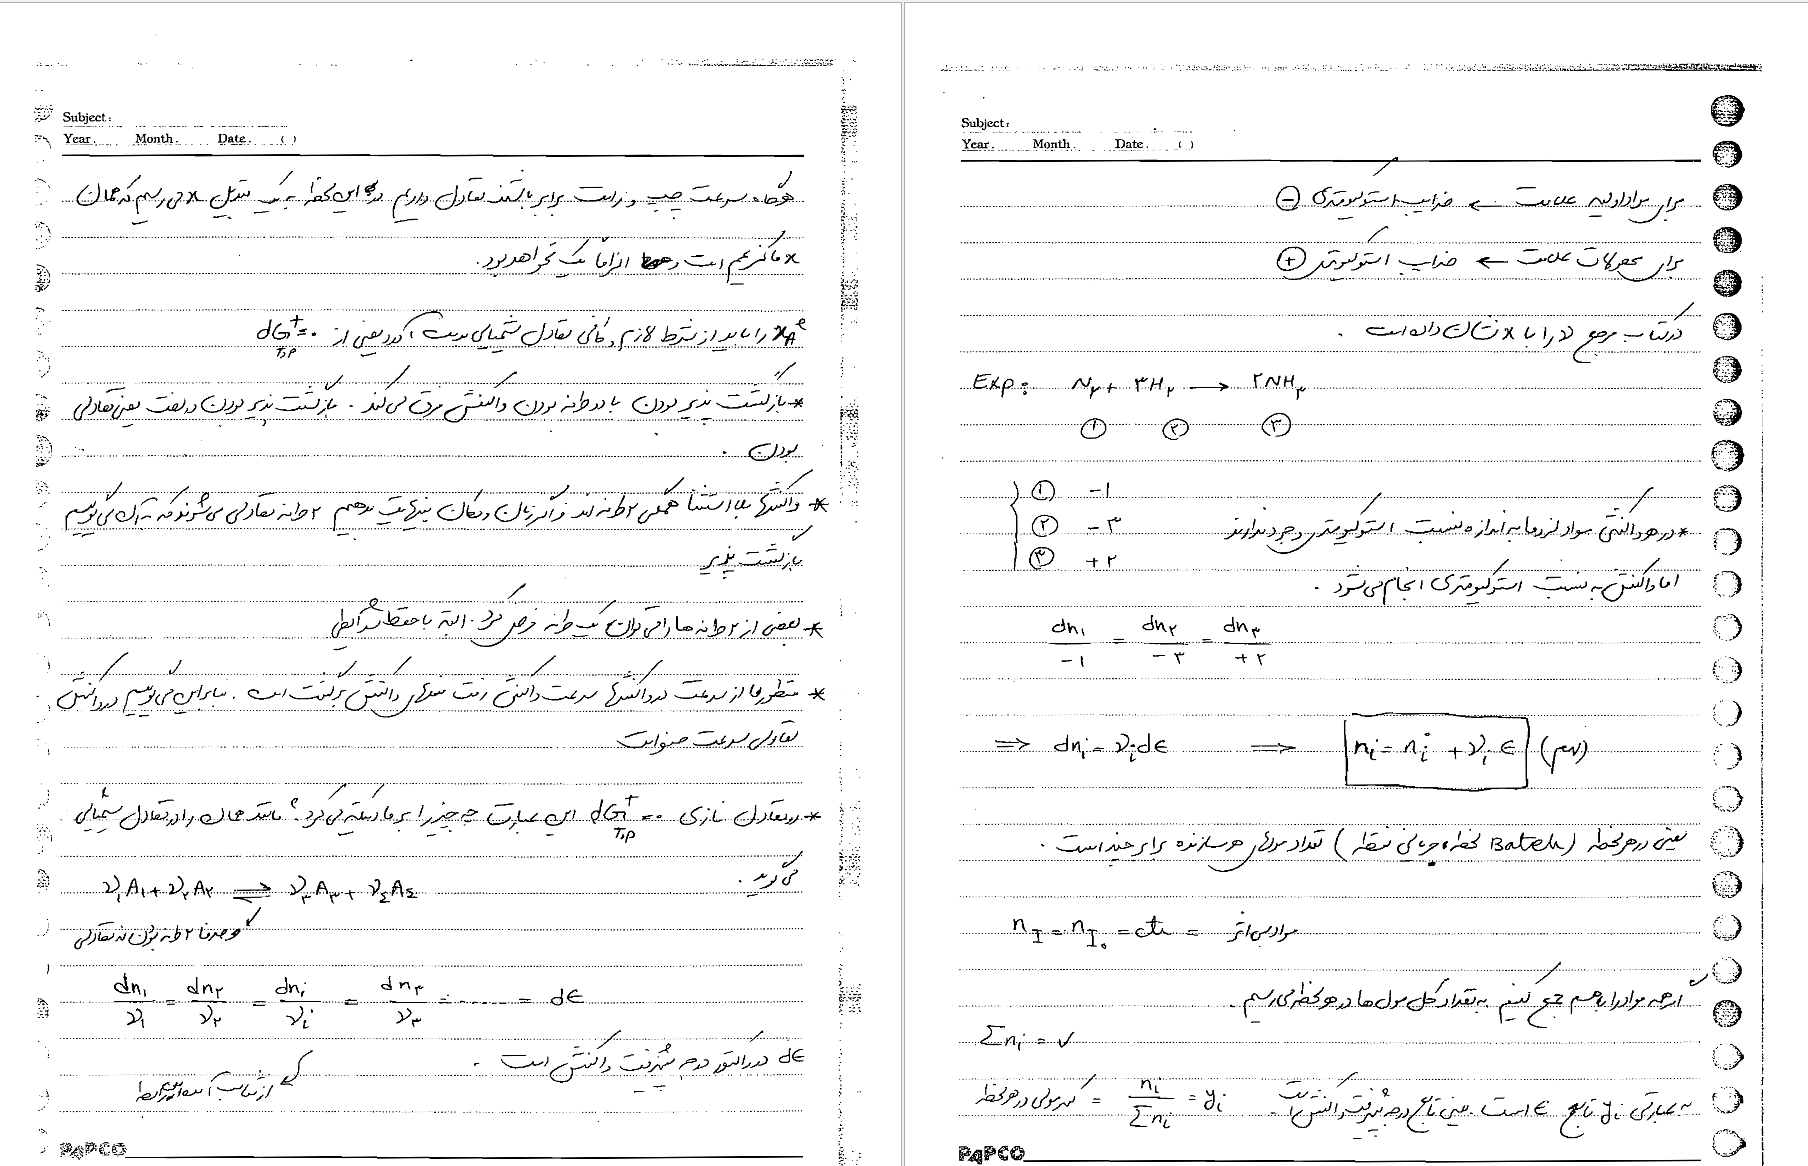 Subject:
Year. Month. Date. ( )
هرگاه سرعت چپ و راست برابر باشند تعادل داریم در این لحظه به یک تبدیل x می رسیم که همان
x ماکزیمم است و الزاماً یک نخواهد بود.
xAe را باید از شرط لازم و کافی تعادل شیمیایی بدست آورد یعنی از dGtT,P = 0
* بازگشت پذیر بودن با دو طرفه بودن واکنش فرق می کند. بازگشت پذیر بودن در رفت یعنی تعادلی
بودن.
* واکنشها بلا استثنا همگی ۲ طرفه اند و اگر زمان و مکان بینهایت بدهیم ۲ طرفه تعادلی می شوند که به آن می گوییم
بازگشت پذیر
* بعضی از ۲ طرفه ها را می توان یک طرفه فرض کرد. البته با حفظ شرایطی
* منظور ما از سرعت در واکنشها سرعت واکنش رفت منهای واکنش برگشت است. بنابراین می گوییم در واکنش
تعادلی سرعت صفر است
* در تعادل فازی dGtT,P = 0 این عبارت چه چیز را بر ما دیکته می کرد؟ مانند همان را در تعادل شیمیایی
می گوید.
ν₁A₁ + ν۲A۲ ⇌ ν۳A۳ + ν۴A۴
و صرفا ۲ طرفه بودن نه تعادلی
dn₁/ν₁ = dn۲/ν۲ = dni/νi = dn۳/ν۳ = ...... = dϵ
dϵ در راکتور درجه پیشرفت واکنش است.
PAPCO
Subject:
Year. Month. Date. ( )
برای مواد اولیه علامت ← ضرایب استوکیومتری ⊖
برای محصولات علامت ← ضرایب استوکیومتری ⊕
در کتاب مرجع ν را با x نشان داده است.
Exp: N۲ + ۳H۲ → ۲NH۳
① ② ③
① -۱
② -۳
③ +۲
* در هر واکنشی مواد لزوما به اندازه نسبت استوکیومتری وجود ندارند
اما واکنش به نسبت استوکیومتری انجام می شود.
dn₁/-۱ = dn۲/-۳ = dn۳/+۲
⇒ dni = νi dϵ ⇒ ni = ni° + νi ϵ (مهم)
یعنی در هر لحظه (Batch لحظه، جریانی نقطه) تعداد مولهای هر سازنده برابر چند است.
nI = nI₀ = cte = مواد بی اثر
اگر همه مواد را با هم جمع کنیم به تعداد کل مول ها در هر لحظه می رسیم.
Σni = ✓
به عبارتی yi تابع ϵ است. یعنی تابع درجه پیشرفت واکنش است. کسر مولی در هر لحظه = ni/Σni = yi
PAPCO